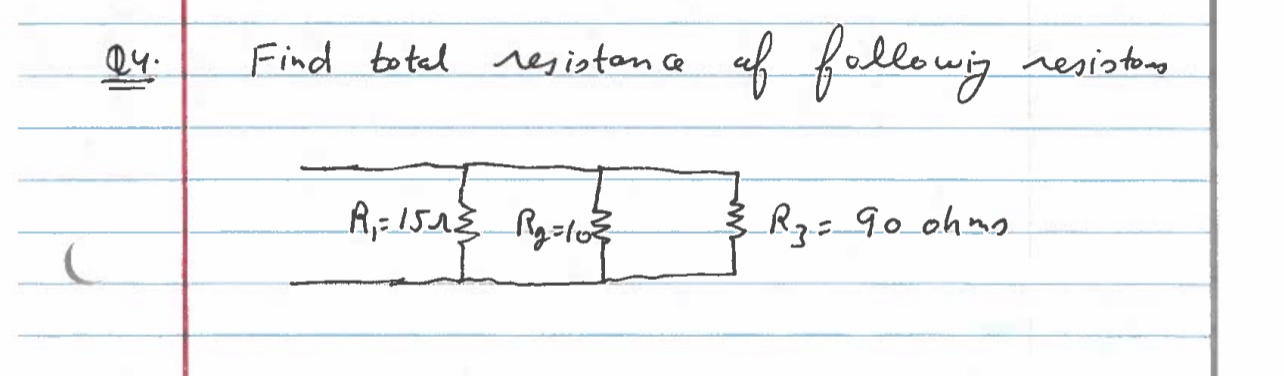 Q4. Find total resistance of following resistors
R₁=15Ω R₂=10 R₃= 90 ohms